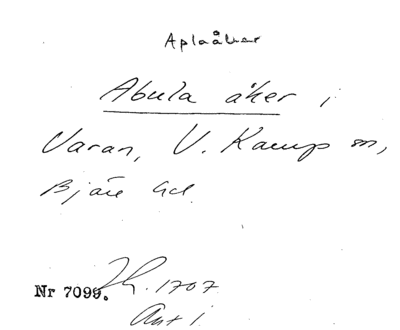 Aplaåker
Abula åker i
Varan, V. Karup sn,
Bjäre hd.
Nr 7099. Jh. 1707
Ant i